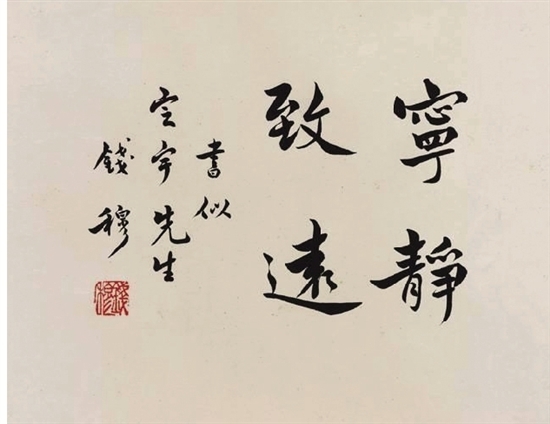 寧靜
致遠
書似
宇先生
錢穆
錢穆